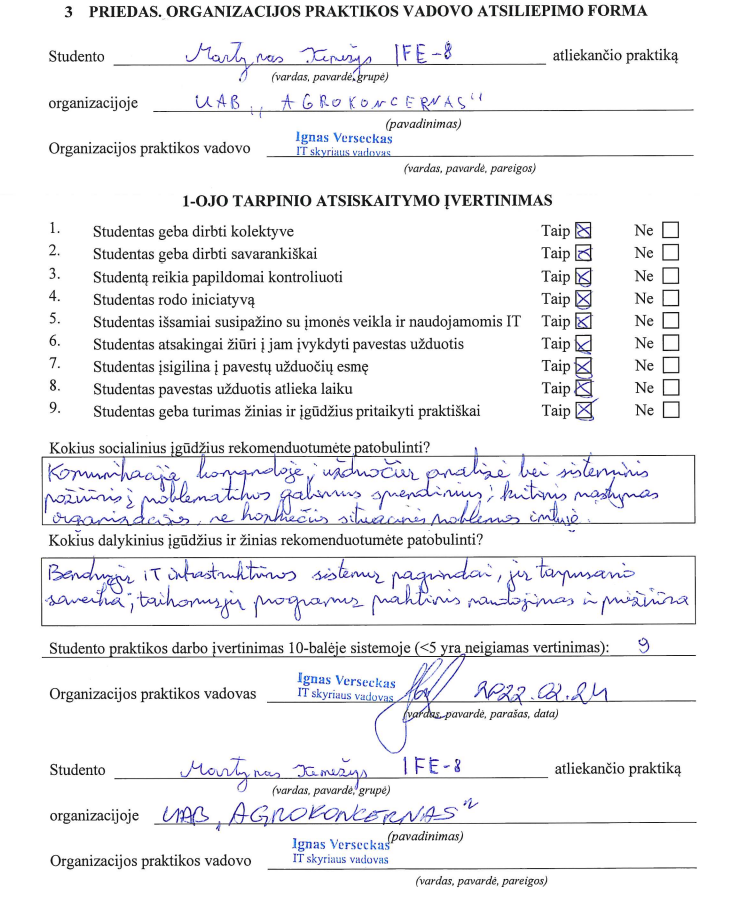 3 PRIEDAS. ORGANIZACIJOS PRAKTIKOS VADOVO ATSILIEPIMO FORMA
Studento Martynas IFE-8 atliekančio praktiką
(vardas, pavardė, grupė)
organizacijoje UAB „AGROKONCERNAS"
(pavadinimas)
Ignas Verseckas
Organizacijos praktikos vadovo IT skyriaus vadovas
(vardas, pavardė, pareigos)
1-OJO TARPINIO ATSISKAITYMO ĮVERTINIMAS
1. Studentas geba dirbti kolektyve Taip ☒ Ne ☐
2. Studentas geba dirbti savarankiškai Taip ☒ Ne ☐
3. Studentą reikia papildomai kontroliuoti Taip ☒ Ne ☐
4. Studentas rodo iniciatyvą Taip ☒ Ne ☐
5. Studentas išsamiai susipažino su įmonės veikla ir naudojamomis IT Taip ☒ Ne ☐
6. Studentas atsakingai žiūri į jam įvykdyti pavestas užduotis Taip ☒ Ne ☐
7. Studentas įsigilina į pavestų užduočių esmę Taip ☒ Ne ☐
8. Studentas pavestas užduotis atlieka laiku Taip ☒ Ne ☐
9. Studentas geba turimas žinias ir įgūdžius pritaikyti praktiškai Taip ☒ Ne ☐
Kokius socialinius įgūdžius rekomenduotumėte patobulinti?
Komunikacija komandoje, užduočių analizė bei sisteminis
požiūris į problematikos galimus sprendimus; kritinis mąstymas
organizacijos, ne konkrečios situacinės problemos imtyje.
Kokius dalykinius įgūdžius ir žinias rekomenduotumėte patobulinti?
Bendrųjų IT infrastruktūros sistemų pagrindai, jų tarpusavio
saveika; taikomųjų programų praktinis naudojimas ir priežiūra
Studento praktikos darbo įvertinimas 10-balėje sistemoje (<5 yra neigiamas vertinimas): 9
Ignas Verseckas
Organizacijos praktikos vadovas IT skyriaus vadovas 2022.02.24
(vardas, pavardė, parašas, data)
Studento Martynas IFE-8 atliekančio praktiką
(vardas, pavardė, grupė)
organizacijoje UAB „AGROKONCERNAS"
(pavadinimas)
Ignas Verseckas
Organizacijos praktikos vadovo IT skyriaus vadovas
(vardas, pavardė, pareigos)